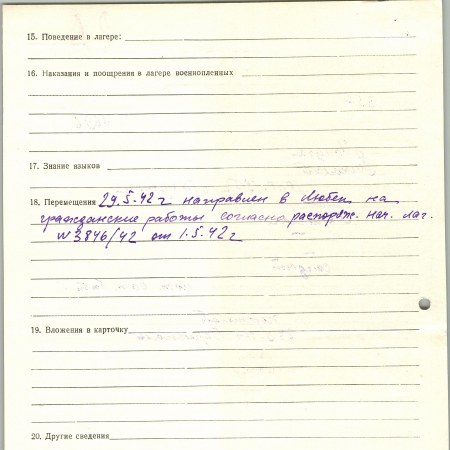 15. Поведение в лагере:
16. Наказания и поощрения в лагере военнопленных
17. Знание языков
18. Перемещения 29.5.42 г направлен в Любек на
гражданские работы согласно распоряж. нач. лаг.
№ 3846/42 от 1.5.42 г
19. Вложения в карточку
20. Другие сведения